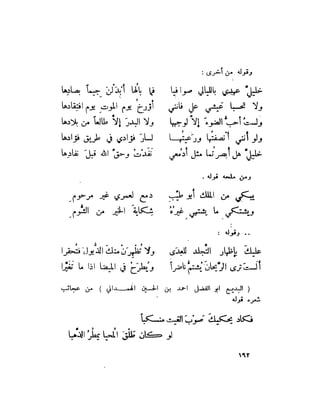 وقوله من أخرى :
خليليَّ عهدي بالليالي صوافيا فما بالُها أبدَلْنَ جيماً بصادها
ولا تحسبا عيشي علي فانني أؤرخ يوم الموت يوم افتقادها
ولستُ أحبُّ الضوءَ إلاّ لوجهها ولا البدرَ إلاّ طالعاً من بلادها
ولو أنني أنصفتُها ورعيتُهــا لسارَ فؤادي في طريق فؤادها
خليليَّ هل أبصرتما مثل أدمعي نفدْتُ وحقِّ الله قبلَ نفادها
ومن ملحه قوله .
يبكي من الملك أبو طيّبِ دمع لعمري غير مرحومِ
ويشتكي ما يشتهي غيرُهُ شكايةَ الخير من الشُّومِ
.. وقوله :
عليكَ بإظهار التجلّد للعِدَى ولا تُظهِرَنْ منكَ الذُّبولَ فتُحقرا
ألستَ ترى الرَّيحانَ يُشتمُّ ناضراً ويُطرَحُ في الميضا اذا ما تغيَّرا
( البديع ابو الفضل احمد بن الحسين الهمــداني ) من عجائب
شعره قوله
فكاد يحكيكَ صوْبُ الغيث منسكباً
لو كــان طلْقَ المُحيا يُمطرُ الذَّهبا
١٩٢